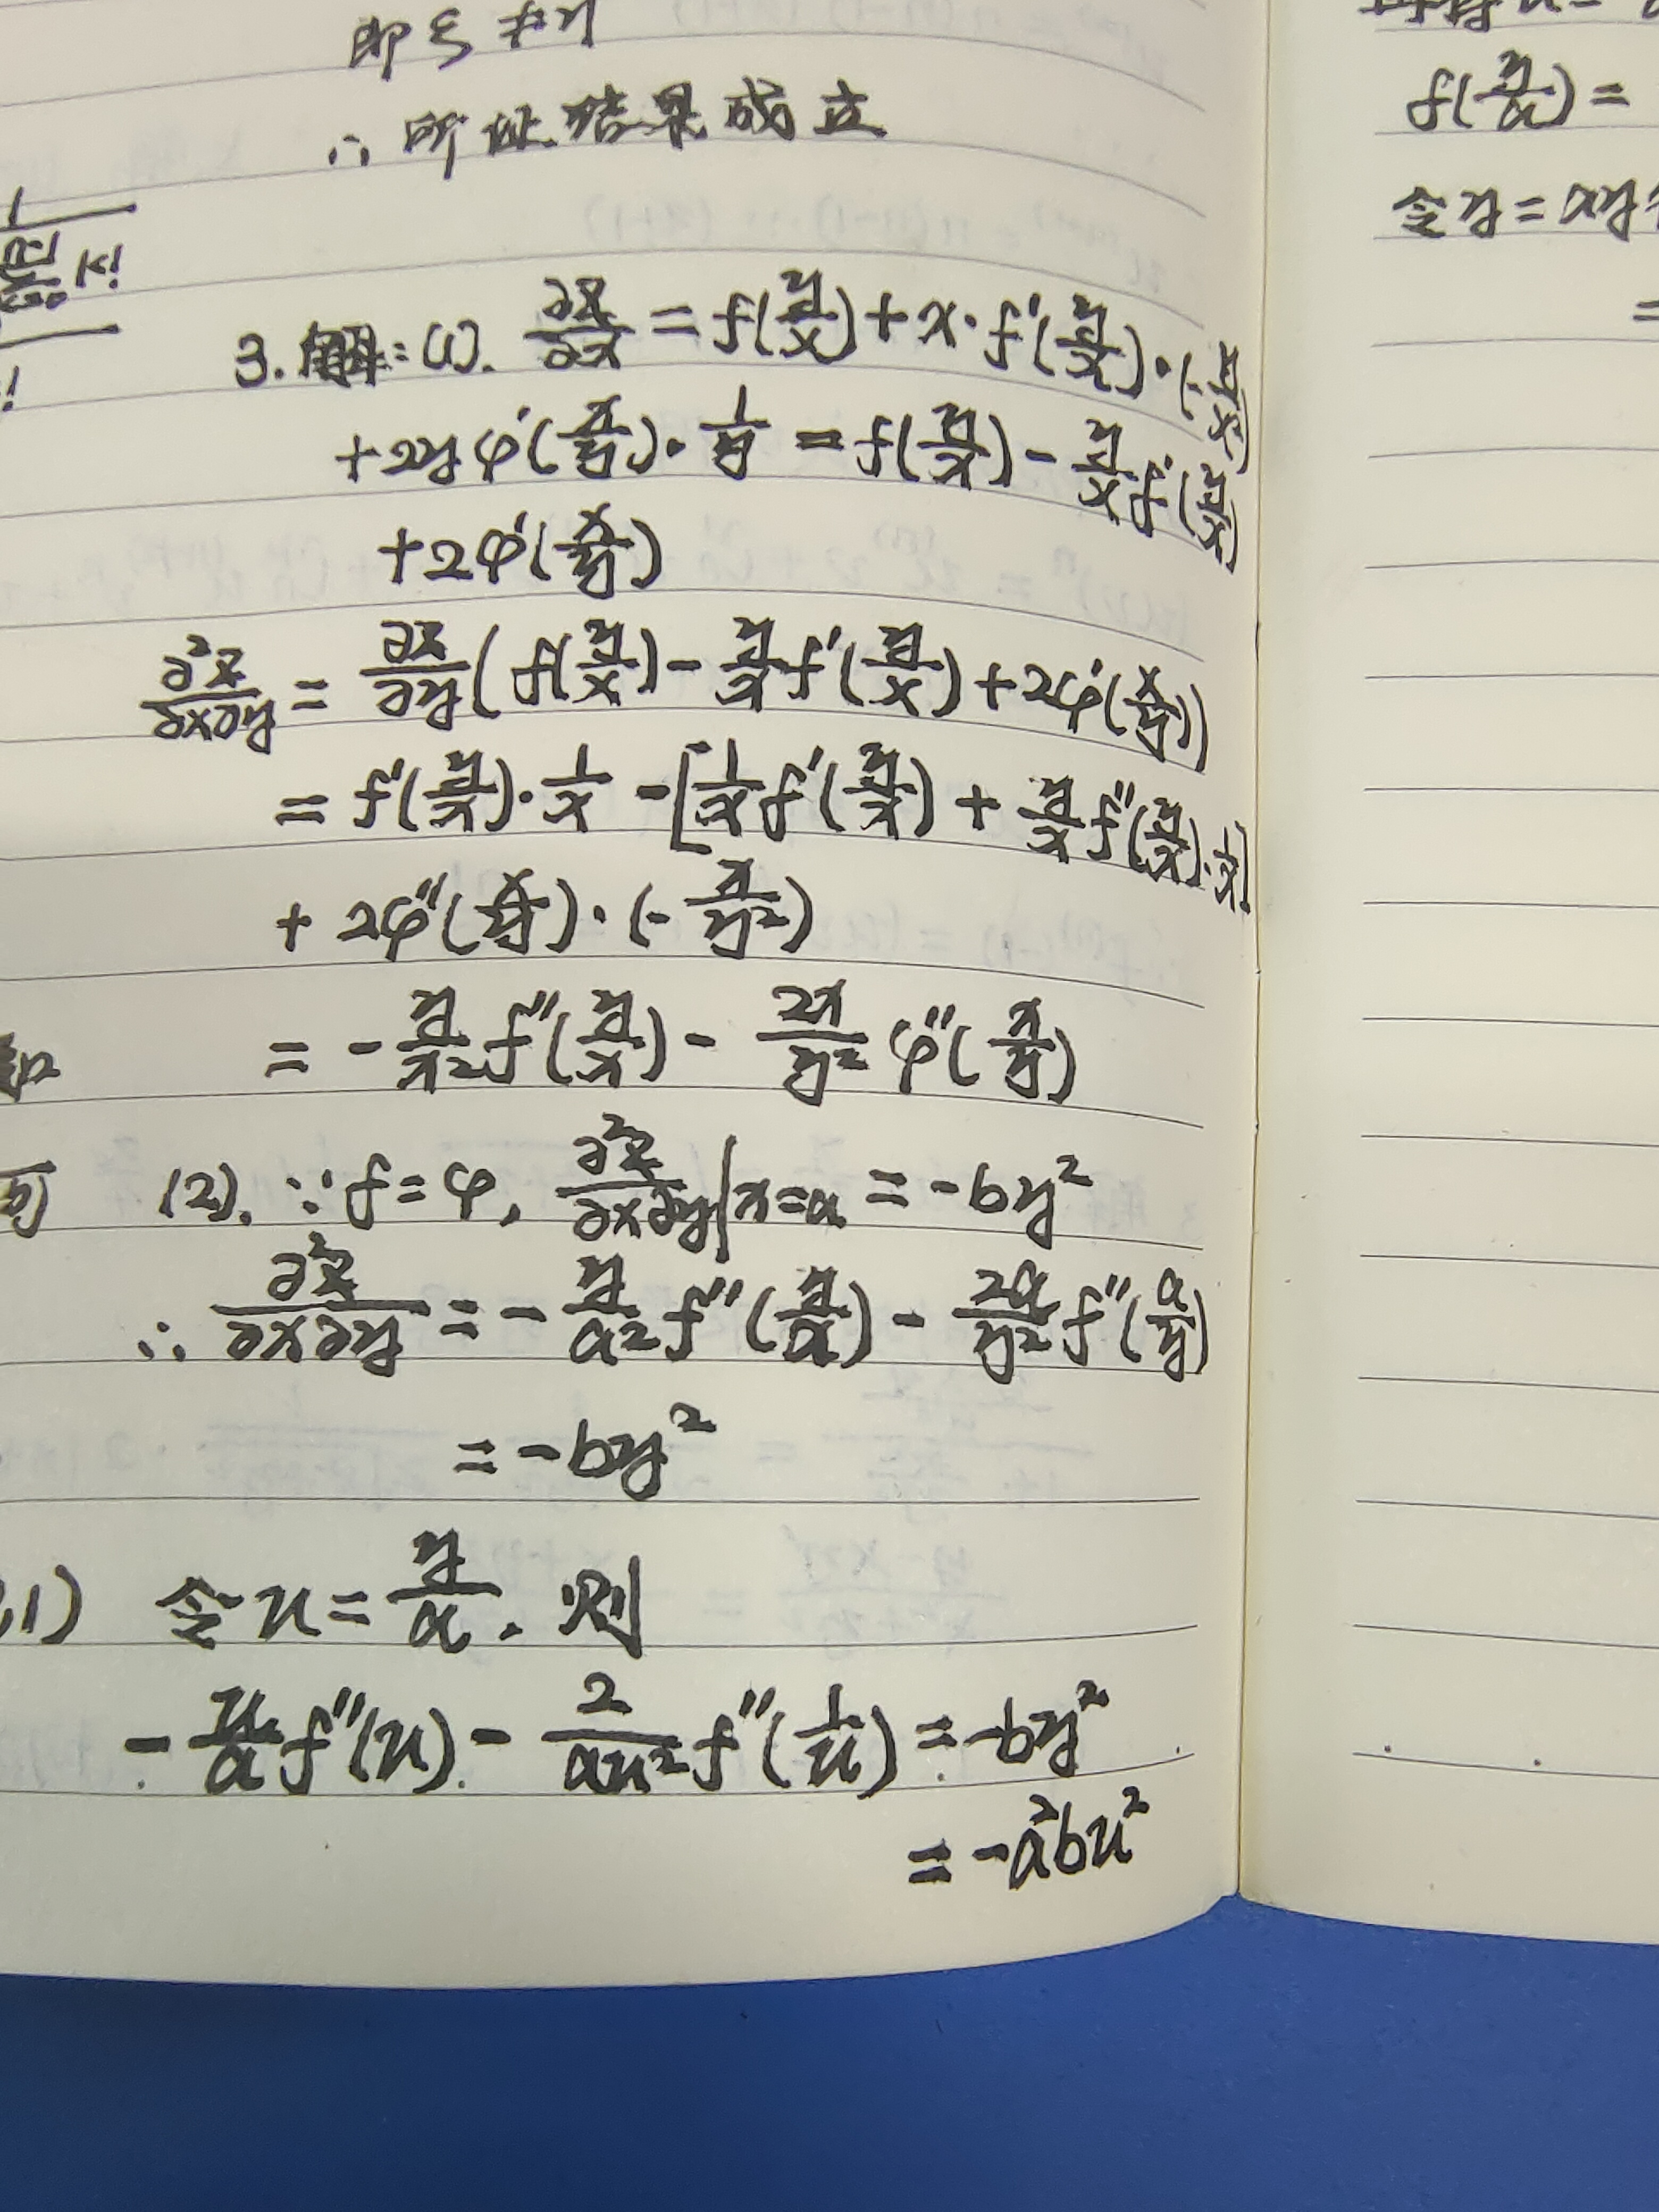 即ξ≠η
∴ 所证结果成立
3. 解: (1). ∂z/∂x = f(y/x) + x·f'(y/x)·(-y/x²)
+ 2yφ'(x/y)·1/y = f(y/x) - y/x f'(y/x)
+ 2φ'(x/y)
∂²z/∂x∂y = ∂z/∂y ( f(y/x) - y/x f'(y/x) + 2φ'(x/y))
= f'(y/x)·1/x - [1/x f'(y/x) + y/x f''(y/x)·1/x]
+ 2φ''(x/y)·(-x/y²)
= - y/x² f''(y/x) - 2x/y² φ''(x/y)
(2). ∵ f = φ, ∂²z/∂x∂y | x=a = -by²
∴ ∂²z/∂x∂y = - y/a² f''(y/a) - 2a/y² f''(a/y)
= -by²
令 u = y/a, 则
- u/a f''(u) - 2/au² f''(1/u) = -by²
= -a²bu²
f(y/a) =
令y =